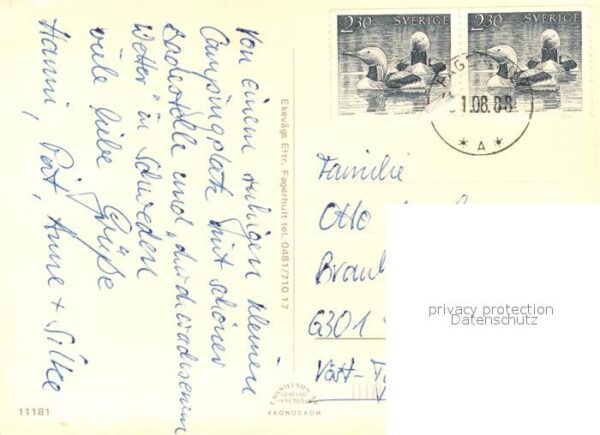 Von einem ruhigen kleinen
Campingplatz mit schöner
Badestelle und „durchwachsenem
Wetter" in Schweden
viele liebe Grüße
Hanni, Anne + Silke
Ekevågs Eftr. Fagerhult tel. 0481/710 17
11181
KRONOCKOM
2.30 SVERIGE
2.30 SVERIGE
1.08.86
A
Familie
Otto
6301
privacy protection
Datenschutz